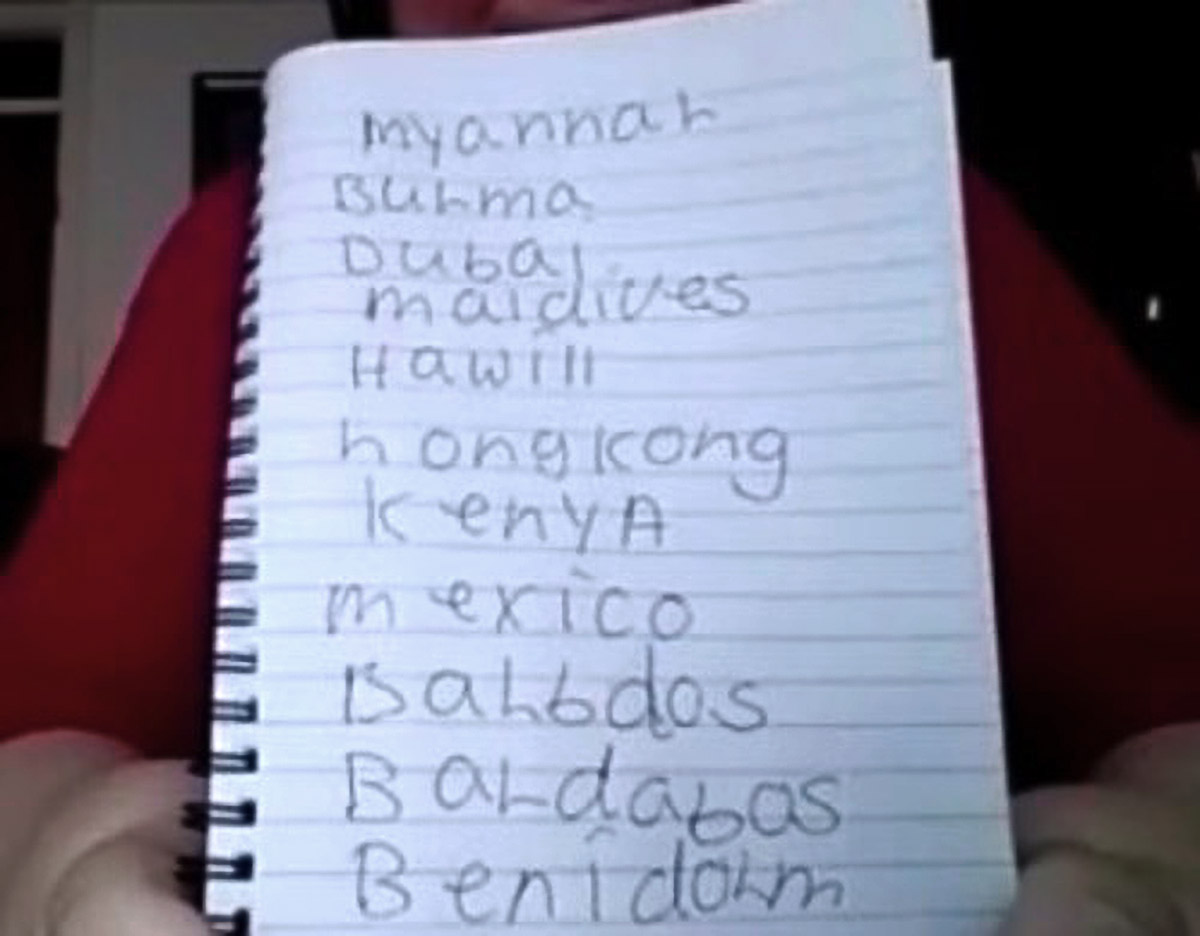 myannar
Burma
Dubai
maldives
Hawiii
hongkong
kenyA
mexico
Barbdos
Bardabas
Benidorm